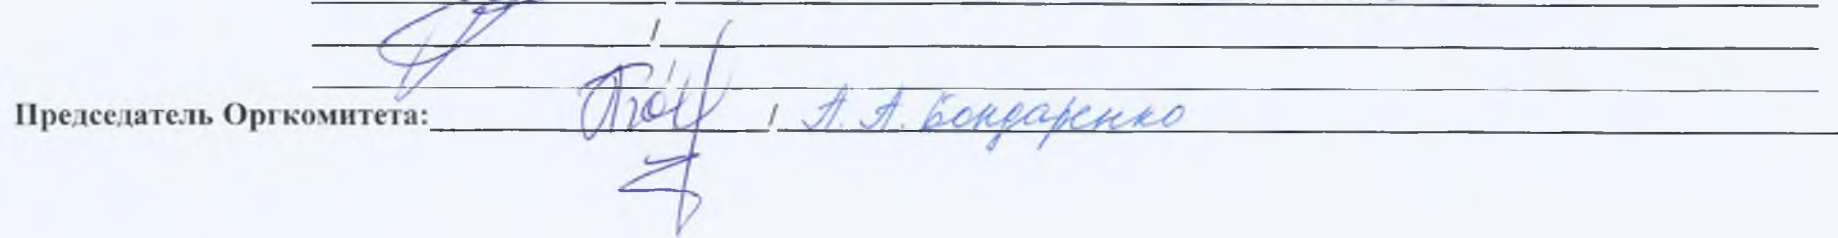 Председатель Оргкомитета: / А. А. Бондаренко